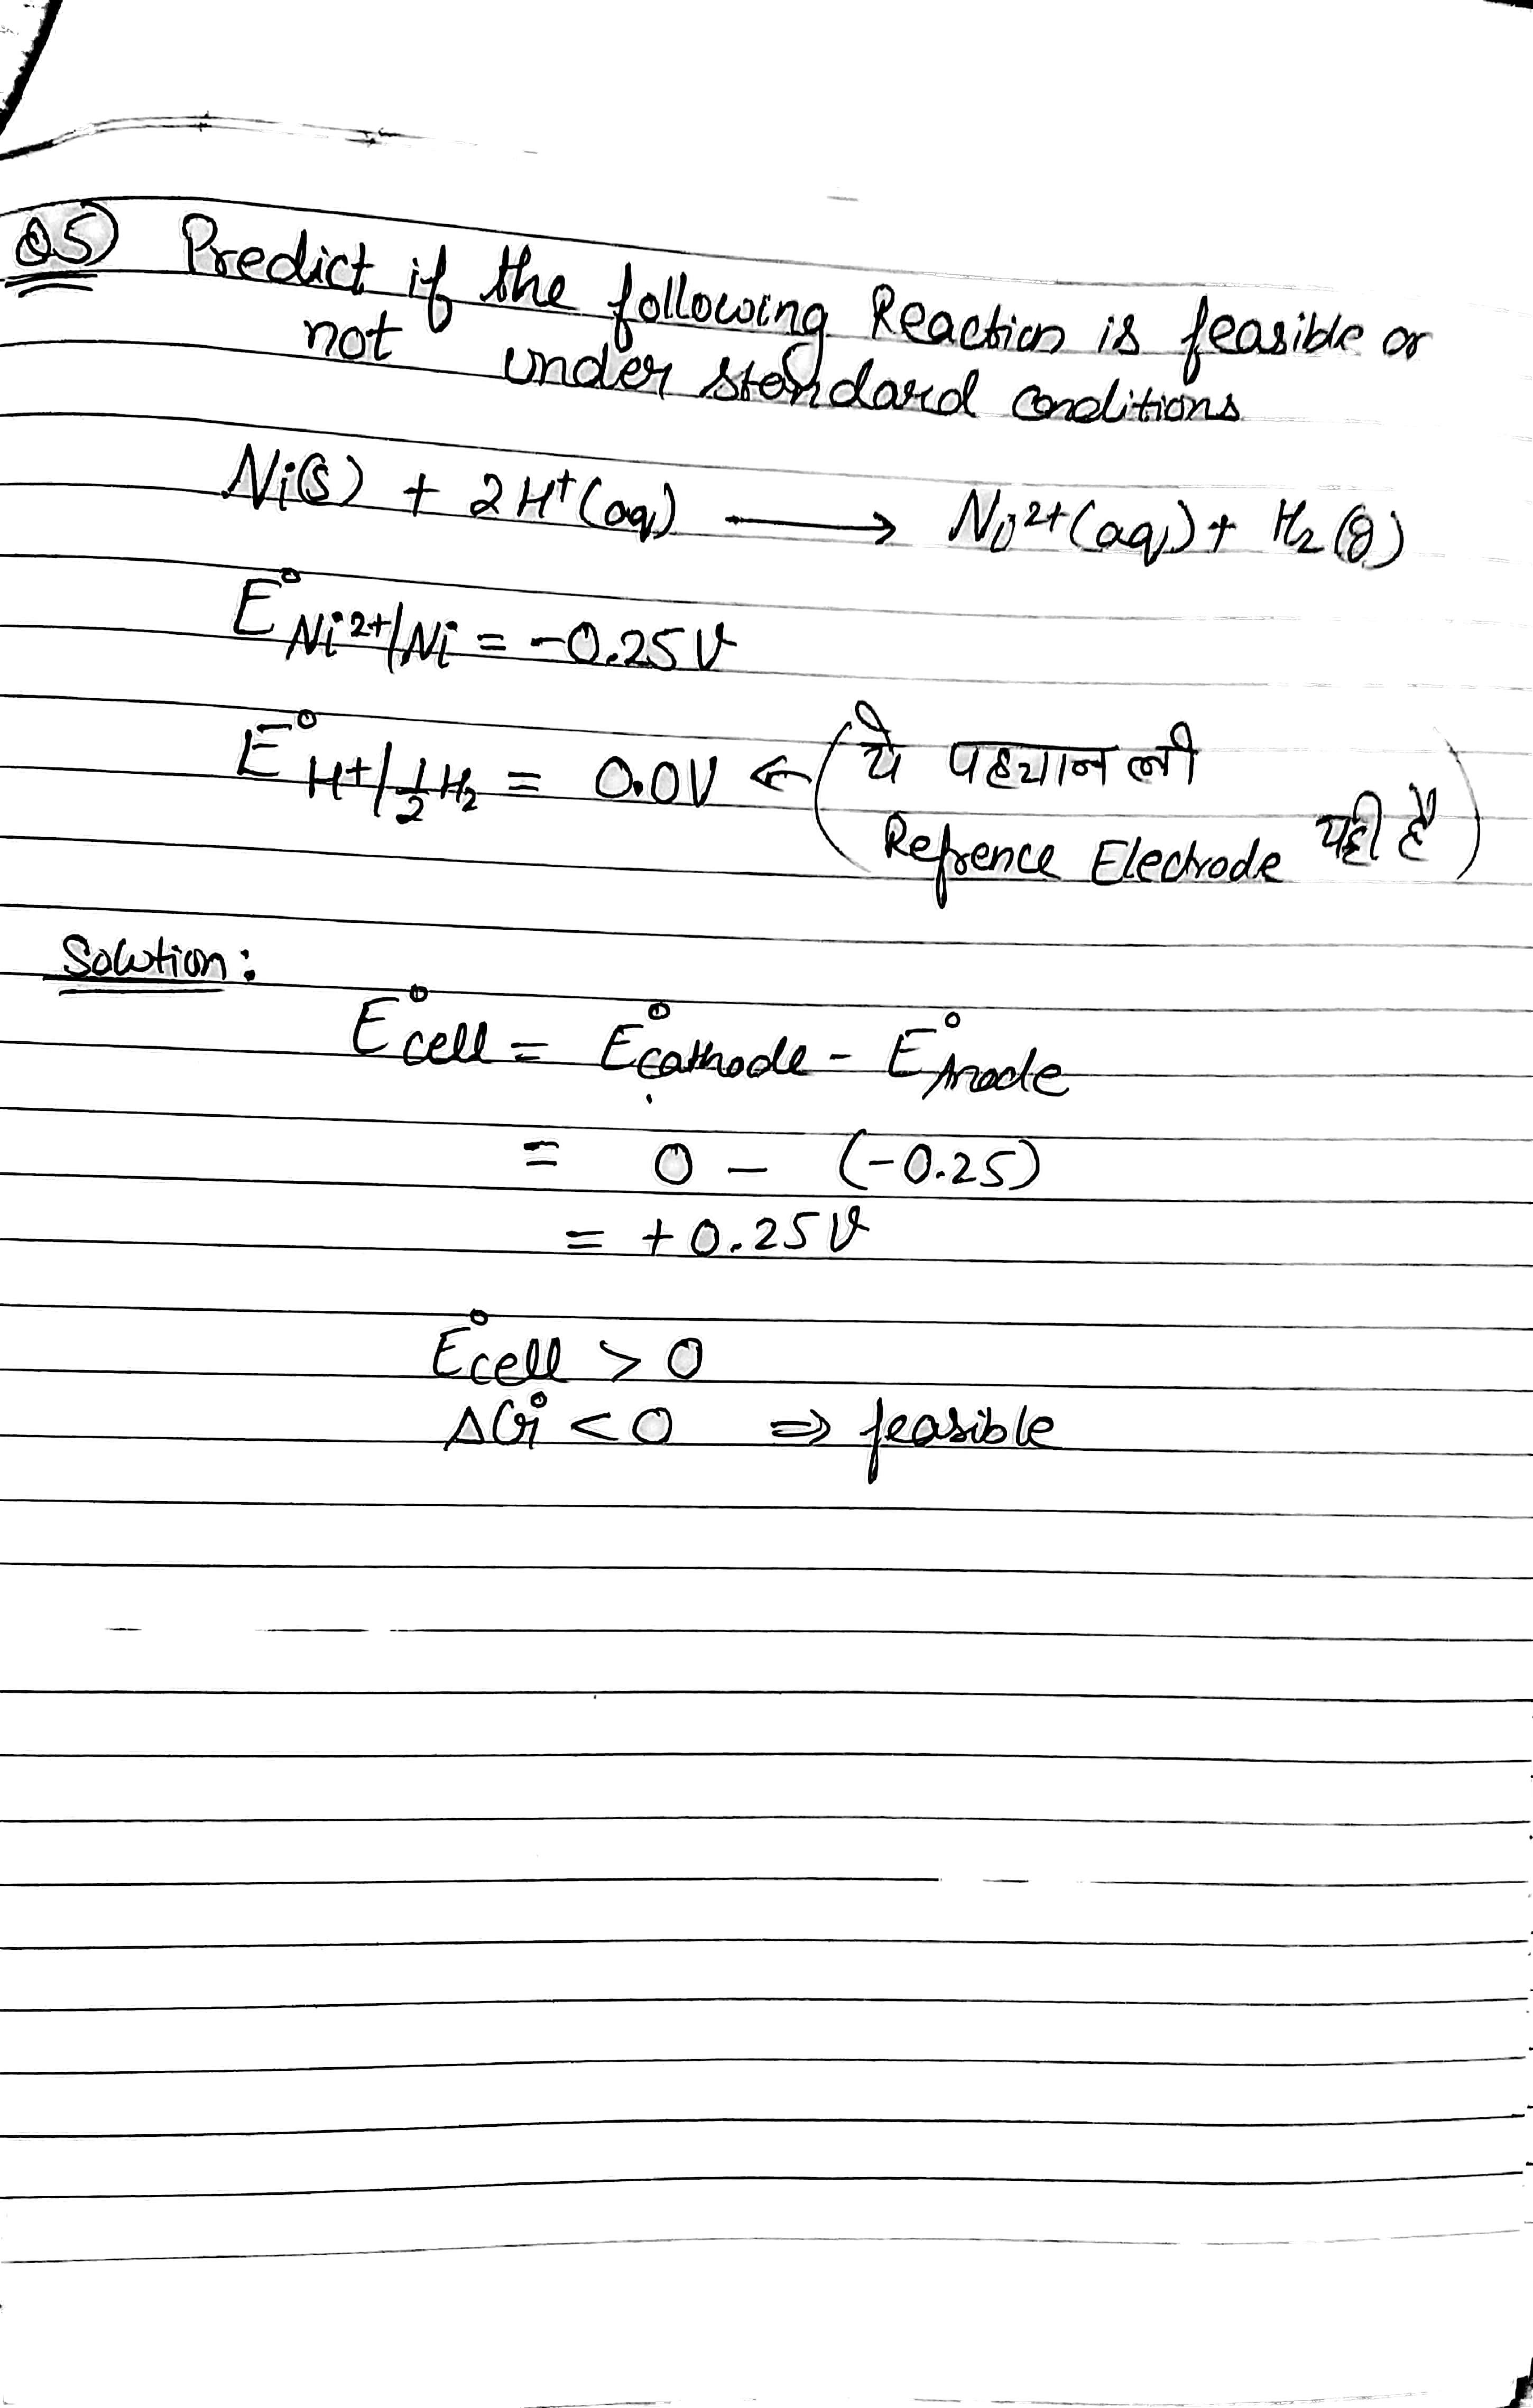 Q5) Predict if the following Reaction is feasible or
not under standard conditions
Ni(s) + 2H⁺(aq) ⟶ Ni²⁺(aq) + H₂(g)
E°Ni²⁺/Ni = -0.25V
E°H⁺/½H₂ = 0.0V ← (ये पहचान लो
Refrence Electrode यही है)
Solution:
E°cell = E°cathode - E°Anode
= 0 - (-0.25)
= +0.25V
E°cell > 0
ΔG° < 0 ⇒ feasible